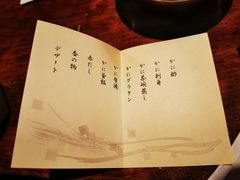 かに酢
かに刺身
かに茶碗蒸し
かにグラタン
かに唐揚
かに釜飯
赤だし
香の物
デザート